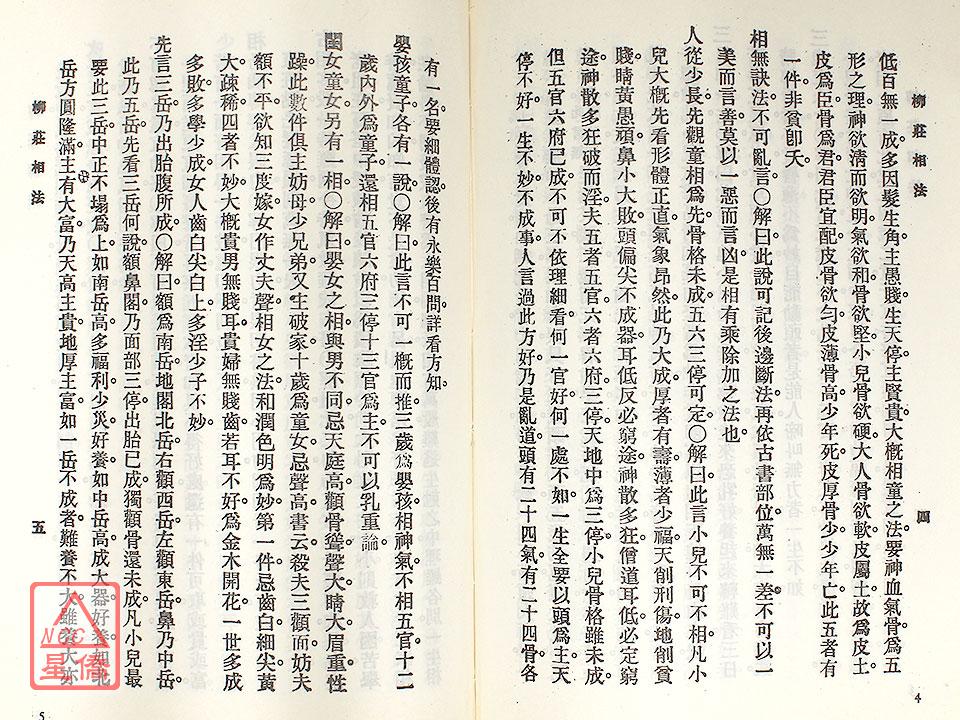 柳莊相法
四
低百無一成多因髮生角主愚賤生天停主賢貴大概相童之法要神血氣骨爲五
形之理神欲清而欲明氣欲和骨欲堅小兒骨欲硬大人骨欲軟皮屬土故爲皮土
皮爲臣骨爲君君臣宜配皮骨欲勻皮薄骨高少年死皮厚骨少少年亡此五者有
一件非貧卽夭
相無訣法不可亂言〇解曰此說可記後邊斷法再依古書部位萬無一差不可以一
美而言善莫以一惡而言凶是相有乘除加之法也
人從少長先觀童相爲先骨格未成五六三停可定〇解曰此言小兒不可不相凡小
兒大概先看形體正直氣象昂然此乃大成厚者有壽薄者少福天削刑傷地削貧
賤睛黃愚頑鼻小大敗頭偏尖不成器耳低反必窮途神散多狂僧道耳低必定窮
途神散多狂破而淫夫五者五官六者六府三停天地中爲三停小兒骨格雖未成
但五官六府已成不可不依理細看何一官好何一處不如一生全要以頭爲主天
停不好一生不妙不成事人言過此方好乃是亂道頭有二十四氣有二十四骨各
4
有一名要細體認後有永樂百問詳看方知
嬰孩童子各有一說〇解曰此言不可一概而推三歲爲嬰孩相神氣不相五官十二
歲內外爲童子還相五官六府三停十三官爲主不可以乳重論
閨女童女另有一相〇解曰嬰女之相與男不同忌天庭高顴骨聳聲大睛大眉重性
躁此數件俱主妨母少兄弟又生破家十歲爲童女忌聲高書云殺夫三顴面妨夫
額不平欲知三度嫁女作丈夫聲相女之法和潤色明爲妙第一件忌齒白細尖黃
大疎稀四者不妙大概貴男無賤耳貴婦無賤齒若耳不好爲金木開花一世多成
多敗多學少成女人齒白尖白上多淫少子不妙
先言三岳乃出胎腹所成〇解曰額爲南岳地閣北岳右顴西岳左顴東岳鼻乃中岳
此乃五岳先看三岳何說額鼻閣乃面部三停出胎已成獨顴骨還未成凡小兒最
要此三岳中正不塌爲上如南岳高多福利少災好養如中岳高成大器好養如北
岳方圓隆滿主有大富乃天高主貴地厚主富如一岳不成者難養不大雖養大亦
柳莊相法
五
5
NCC
星僑